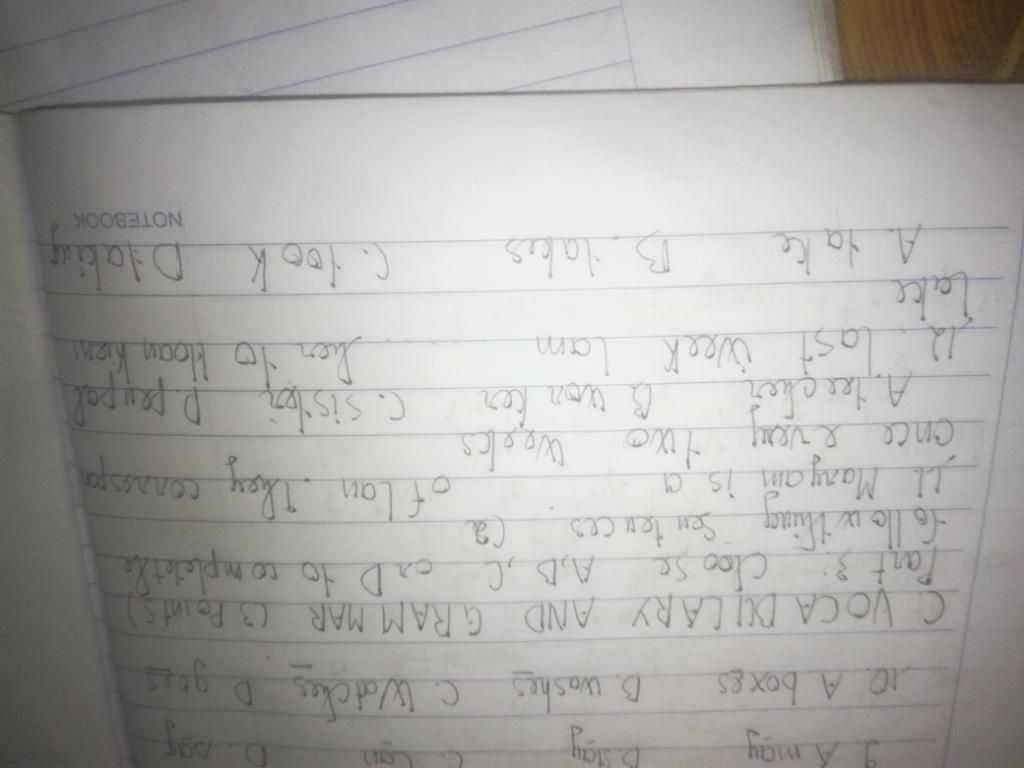 9. A may B.stay C. can D. say
10. A boxes B. washes C. Watches D goes
C. VOCABULARY AND GRAMMAR (3 Points)
Part 3: Choose A,B,C or D to complete the
followthing sentences (2
11 Maryam is a of Lan. They correspo
once every two weeks
A. teecher B worker C. sister D. penpal
12. last week Lam ........ her to Hoan Kiem
Lake
A. take B. takes C. took D taking
NOTEBOOK